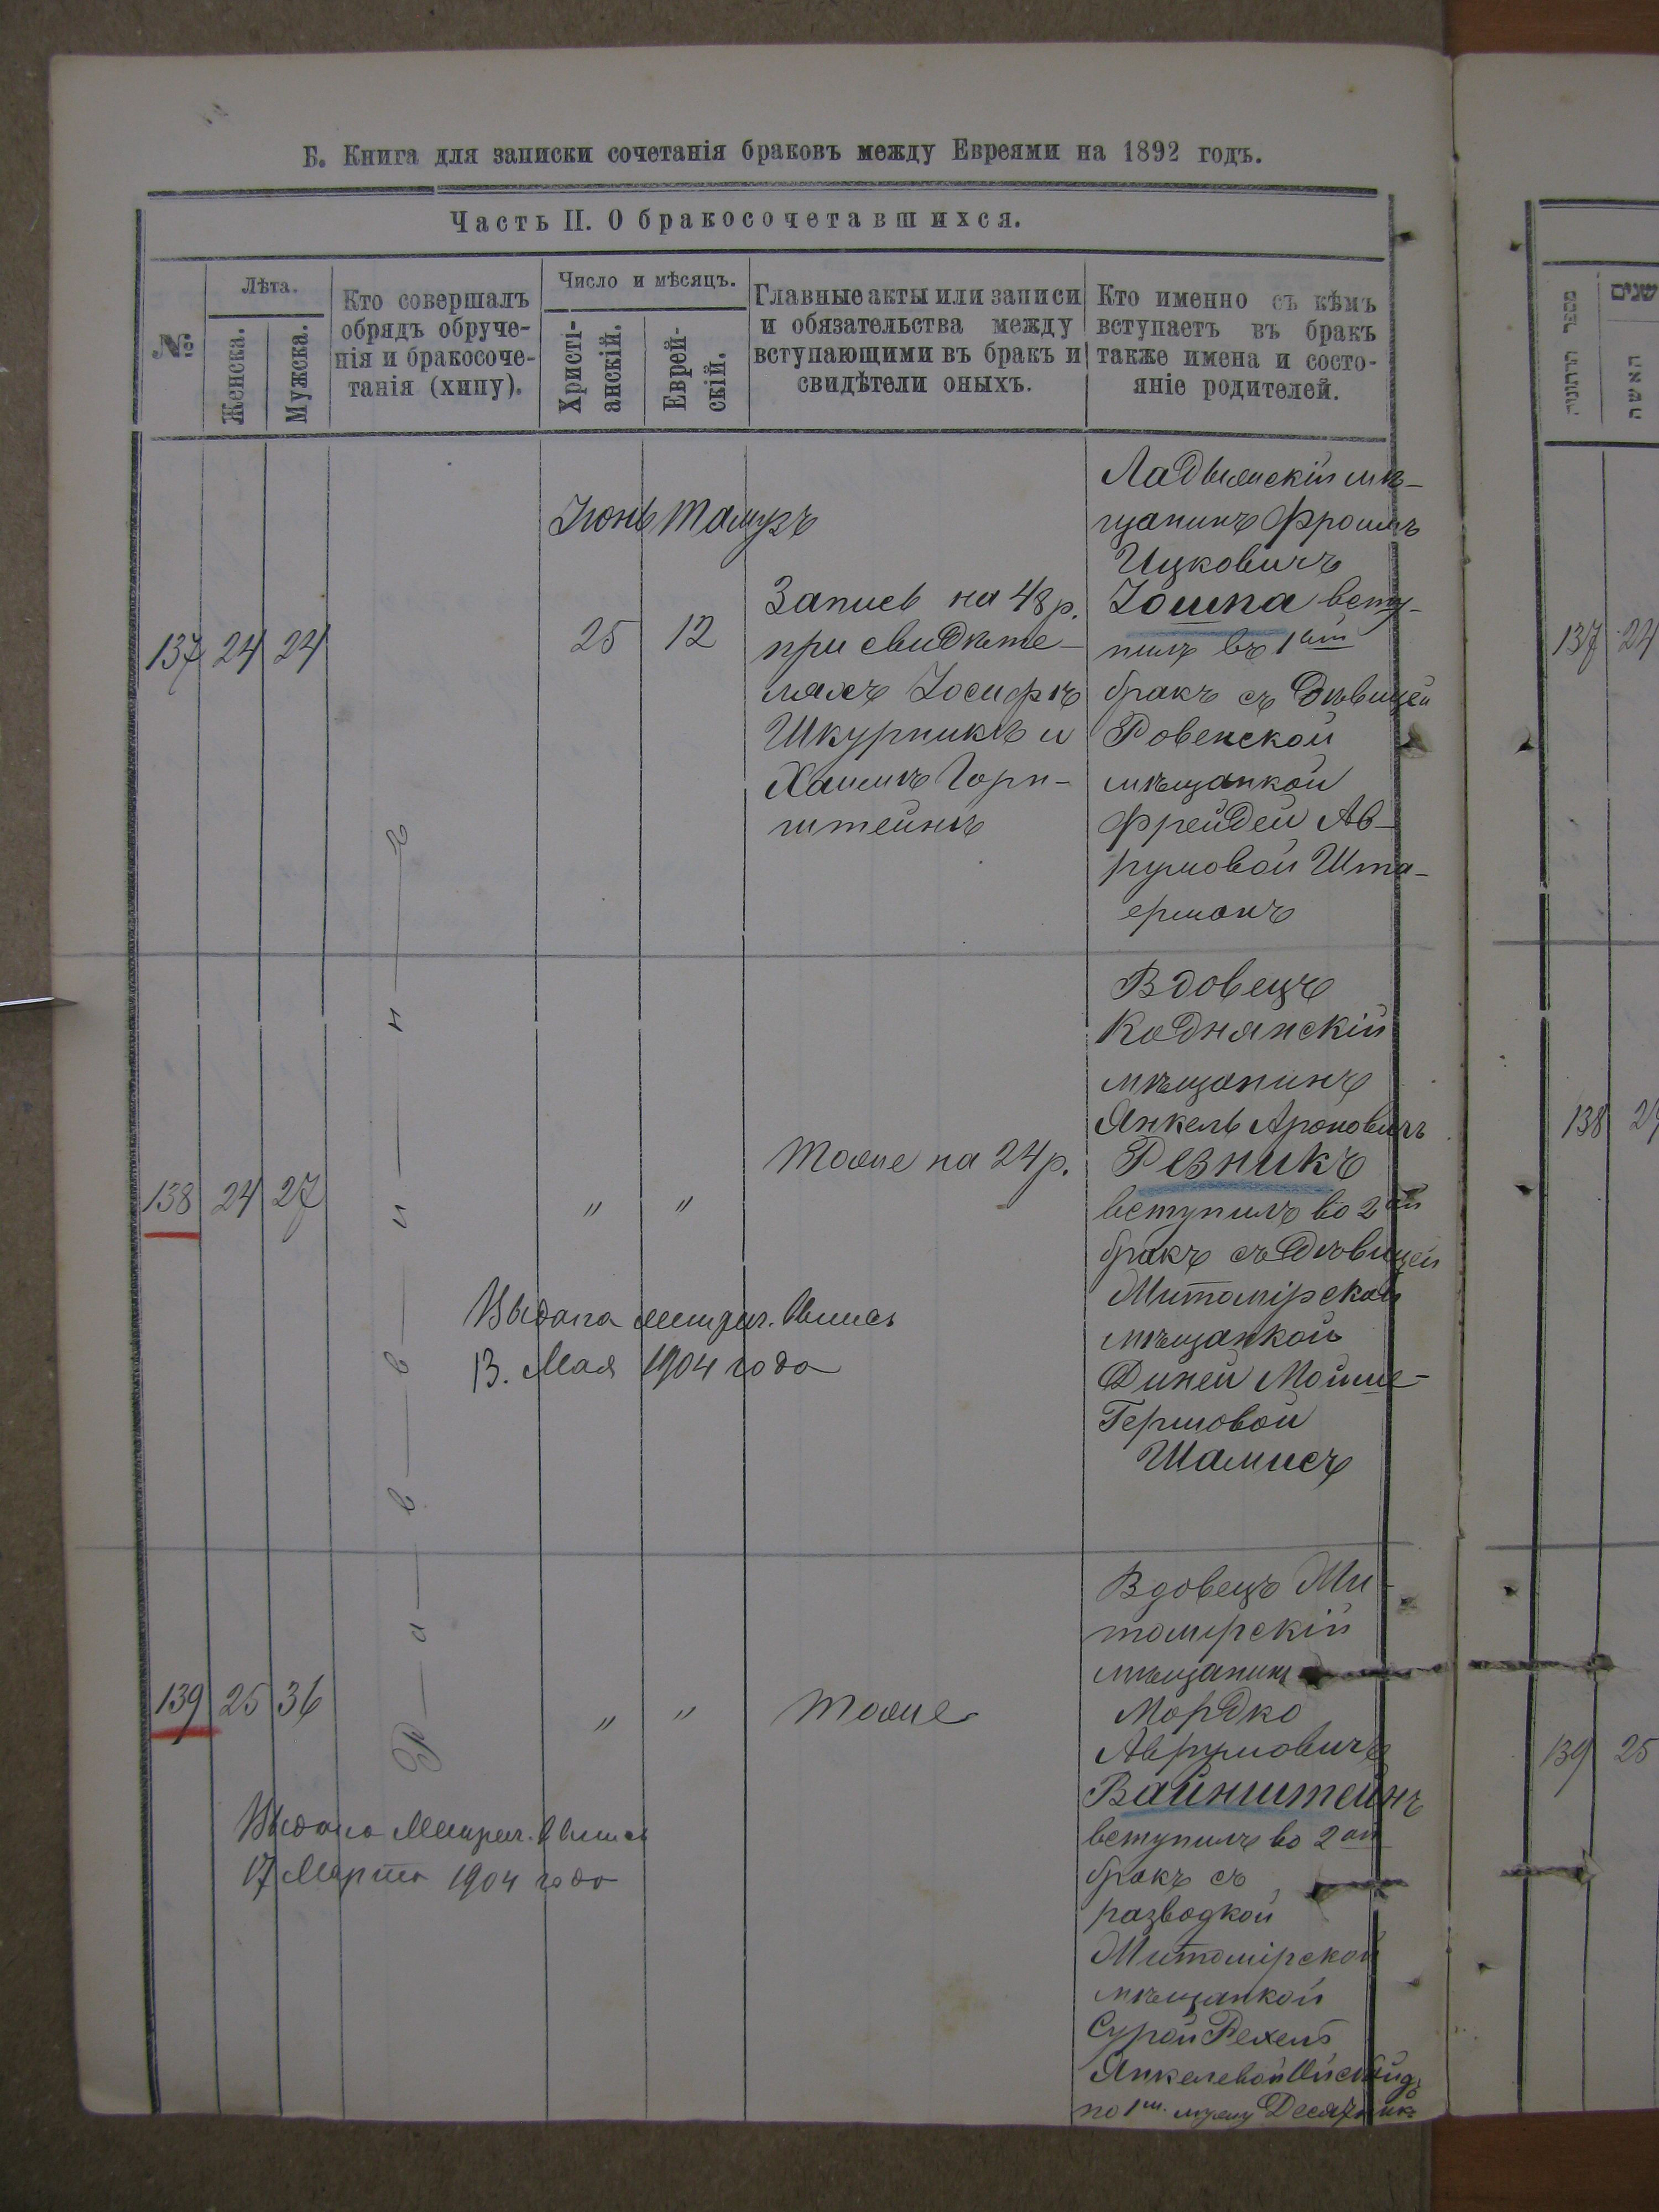 Б. Книга для записки сочетанія браковъ между Евреями на 1892 годъ.
Часть II. О бракосочетавшихся.
№
Лѣта.
Женска.
Мужска.
Кто совершалъ
обрядъ обруче-
нія и бракосоче-
танія (хипу).
Число и мѣсяцъ.
Христі-
анскій.
Еврей-
скій.
Главные акты или записи
и обязательства между
вступающими въ бракъ и
свидѣтели оныхъ.
Кто именно съ кѣмъ
вступаетъ въ бракъ
также имена и состо-
яніе родителей.
Р а в в и н ъ
Іюнь Тамузъ
137 24 24
25 12
Запись на 48 р.
при свидѣте-
ляхъ Іосифѣ
Шкурникѣ и
Хаимѣ Горн-
штейнѣ
мѣ-
щанинъ Фроимъ
Ицковичъ
Іошпа всту-
пилъ въ 1ый
бракъ съ дѣвицей
Ровенской
мѣщанкой
Фрейдей Ав-
румовой Шта-
ерманъ
138 24 27
" "
Тоже на 24 р.
Вдовецъ
Коднянскій
мѣщанинъ
Янкель Ароновичъ
Резникъ
вступилъ во 2ой
бракъ съ дѣвицей
Житомірской
мѣщанкой
Диней Мойше-
Гершовой
Шамисъ
Выдана метрич. выпись
13. Мая 1904 года
139 25 36
" "
Тоже
Вдовецъ Жи-
томірскій
мѣщанинъ
Мордко
Аврумовичъ
Вайнштейнъ
вступилъ во 2ой
бракъ съ
разводкой
Житомірской
мѣщанкой
Сурой Рехель
Янкелевой
по 1м. мужу
Выдана Метрич. выпись
17 Марта 1904 года
שנים
מספר החתונה
האשה
137 24
138 24
139 25